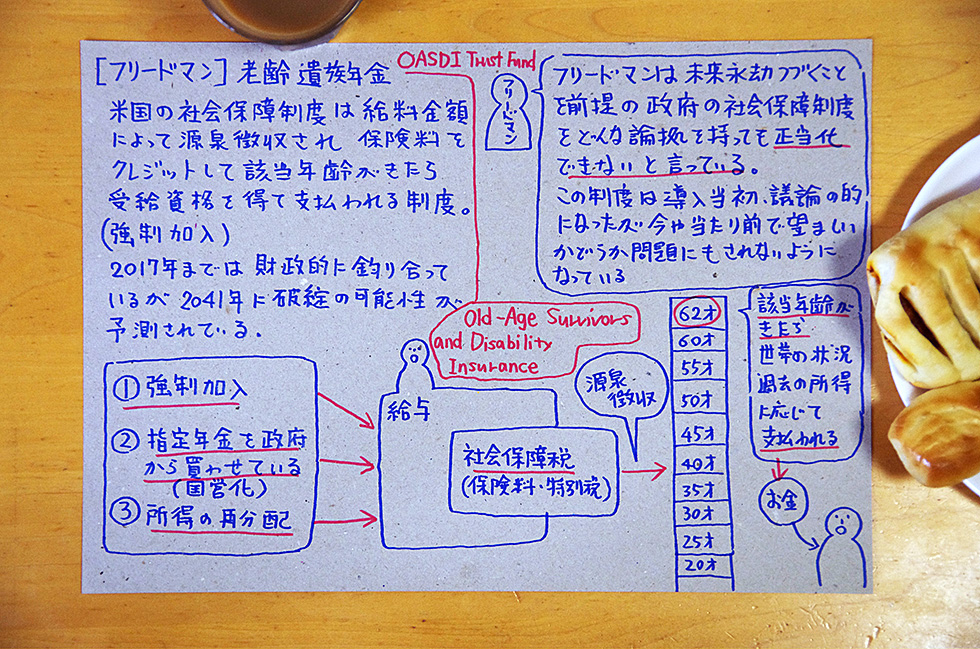 [フリードマン] 老齢遺族年金
OASDI Trust Fund
米国の社会保障制度は給料金額
によって源泉徴収され 保険料を
クレジットして該当年齢がきたら
受給資格を得て支払われる制度。
(強制加入)
2017年までは財政的に釣り合って
いるが2041年に破綻の可能性が
予測されている.
フリードマン
フリードマンは未来永劫つづくこと
を前提の政府の社会保障制度
をどんな論拠を持っても正当化
できないと言っている。
この制度は導入当初、議論の的
になったが今や当たり前で望ましい
かどうか問題にもされないように
なっている
Old-Age Survivors
and Disability
Insurance
①強制加入
②指定年金を政府
から買わせている
(国営化)
③所得の再分配
給与
社会保障税
(保険料・特別税)
源泉
徴収
62才
60才
55才
50才
45才
40才
35才
30才
25才
20才
該当年齢が
きたら
世帯の状況
過去の所得
に応じて
支払われる
お金